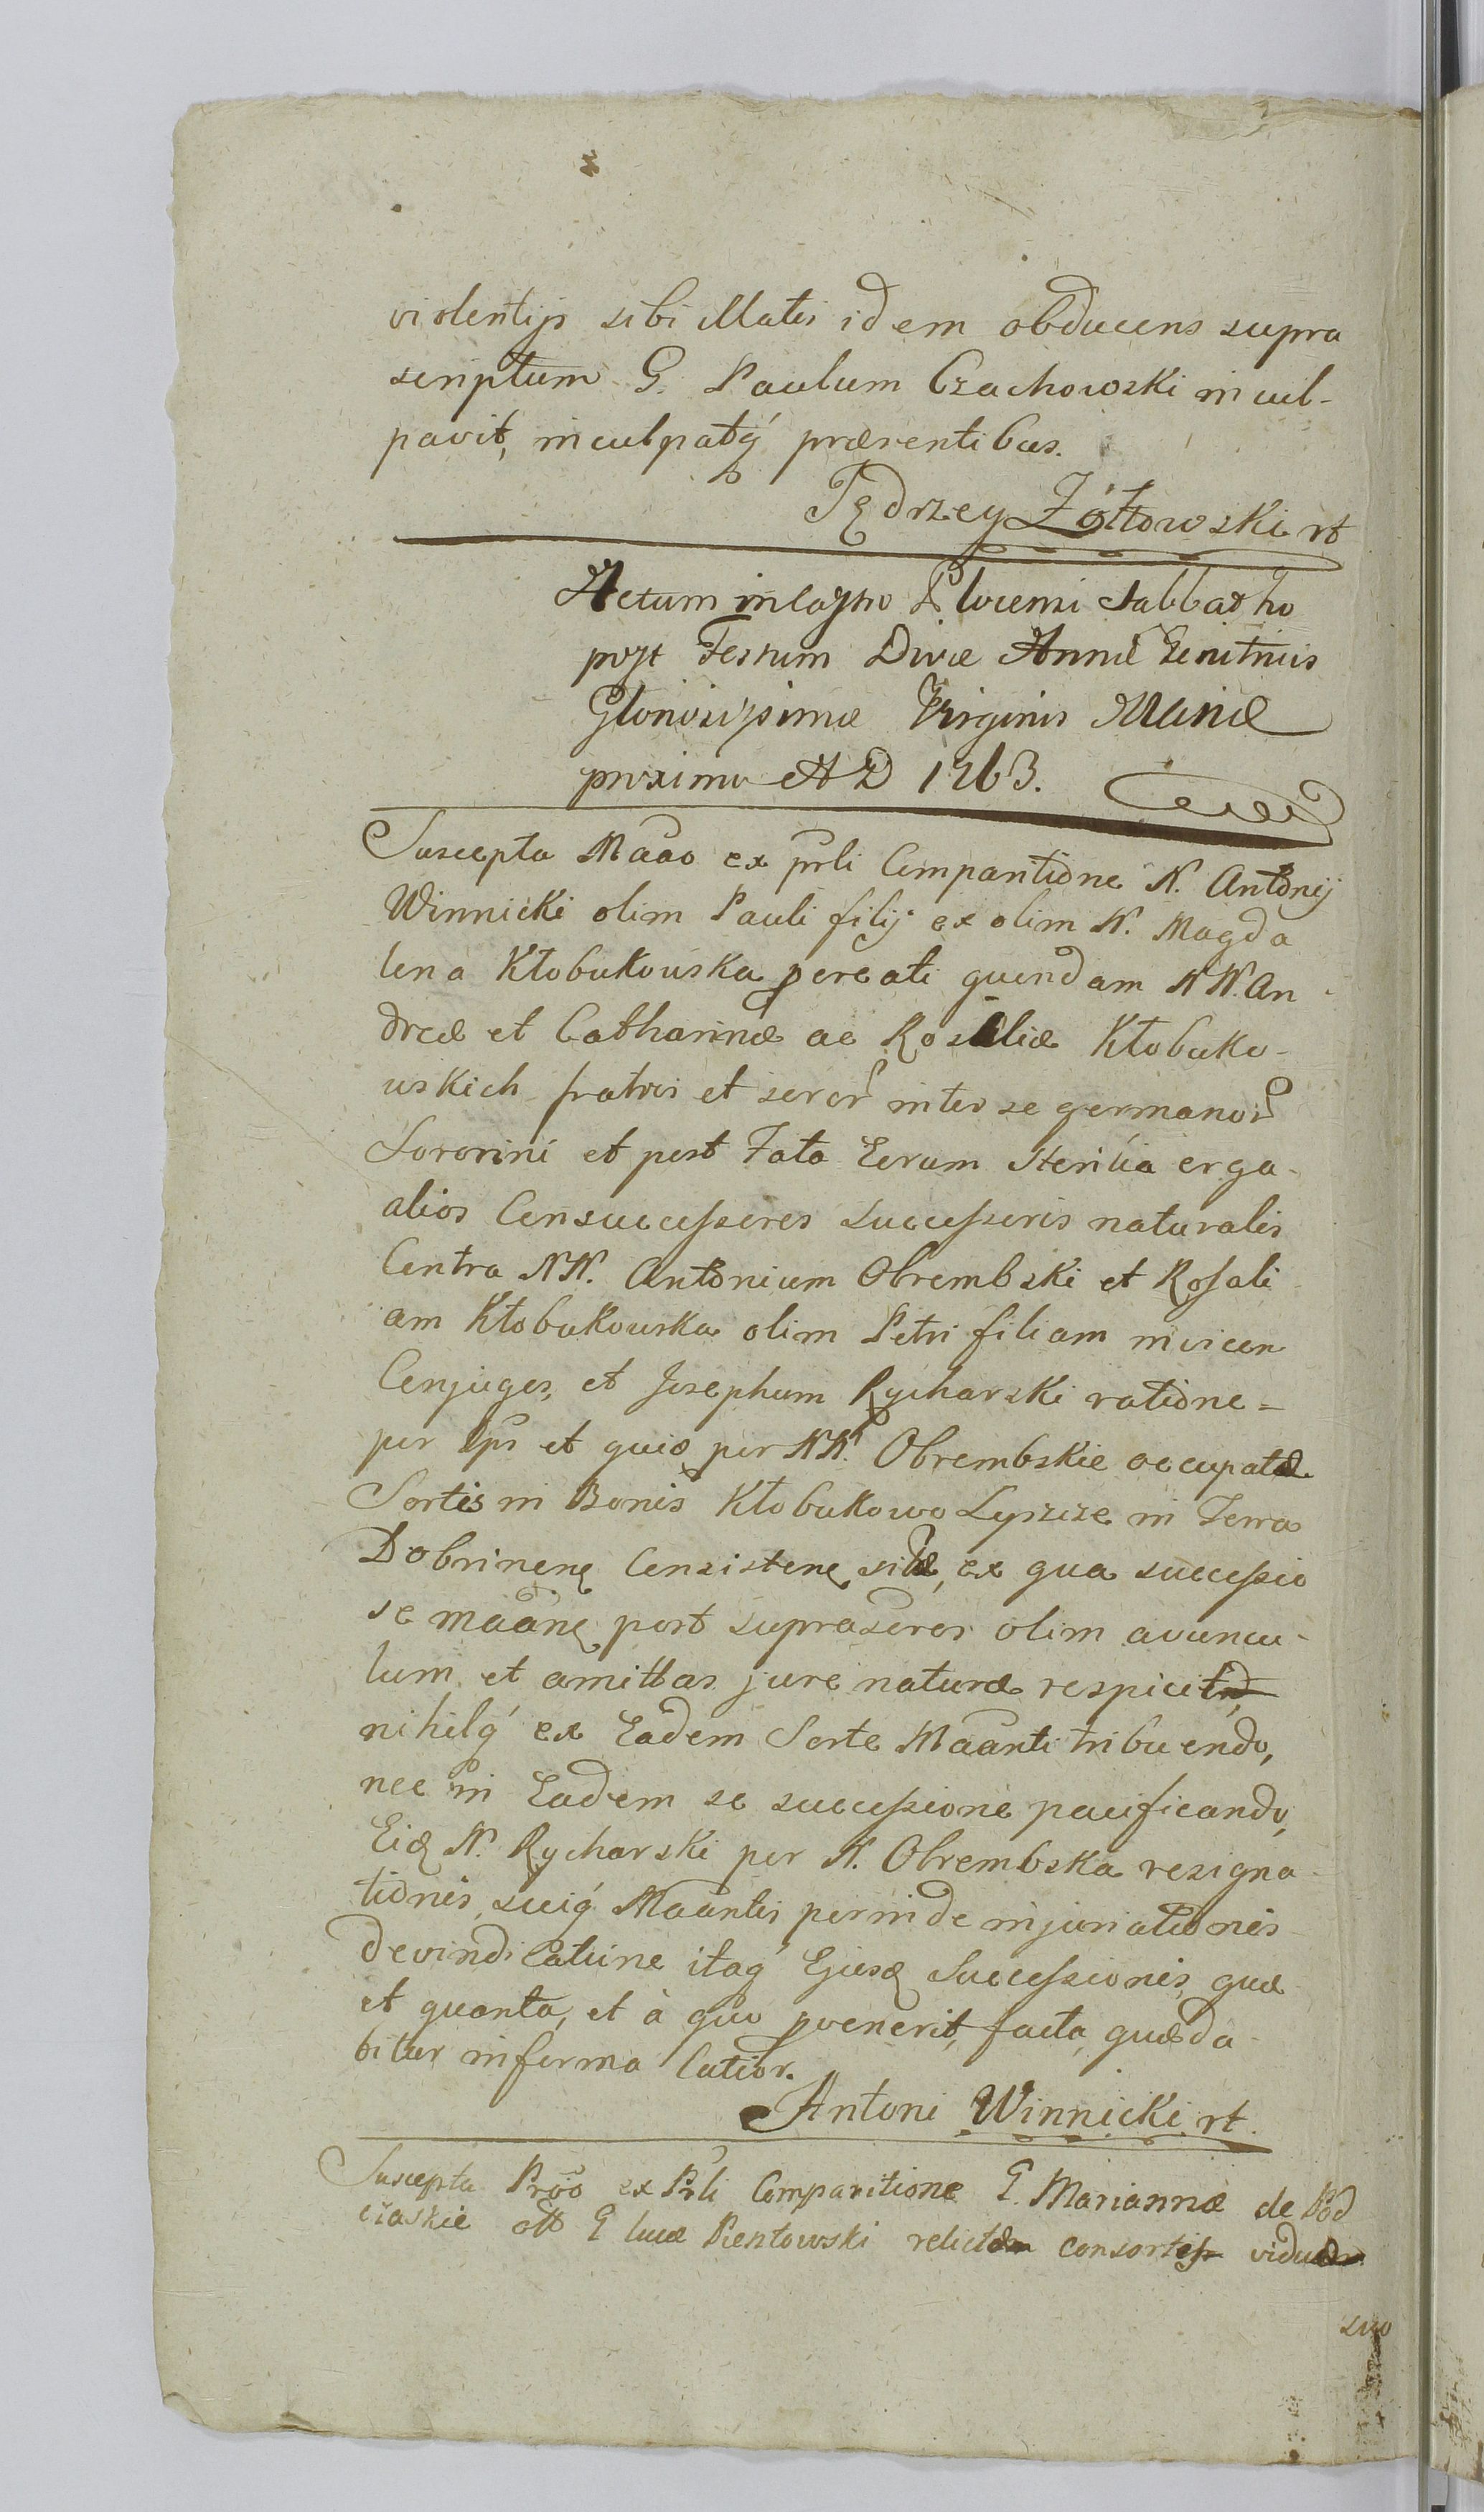 violentijs sibi illatis idem obducens supra
scriptum G. Paulum Czachowski incul-
pavit, inculpatq́ præsentibus.
Jędrzey Żółtowski rt
Actum in Castro Plocensi Sabbatho
post Festum Divæ Annæ Genitricis
Gloriosissimæ Virginis Mariæ
proximo A D 1763.
Suscepta Maão ex prli Comparitione N. Antonij
Winnicki olim Pauli filij ex olim N. Magda
lena Kłobukowska pcreati quondam NN. An-
dreæ et Catharinæ ac Rosaliæ Kłobuko-
wskich fratris et soror inter se germanor
Sororini et post Fata Eorum Sterilia erga
alios Consuccessores Successoris naturalis
Contra NN. Antonium Obrembski et Rosali
am Kłobukowska olim Petri filiam invicem
Conjuges, et Josephum Rycharski ratione=
per Ips et quid per NN. Obrembskie occupatæ
Sortis in Bonis Kłobukowo Łyszcze in Terra
Dobrinen Consisten sitæ, ex qua successio
se maãn post suprascros olim avuncu-
lum et amittas jure naturæ respicit
nihilq́ ex Eadem Sorte Maãnti tribuendo,
nec in Eadem se successione pacificando,
Eid N. Rycharski per N. Obrembska resigna-
tionis, suiq́ Maãntis perinde injuriationis
devindicatione itaq́ Ejusd Successionis, quæ
et quanta, et à quo pvenerit, facta, quæ da
bitur in forma latior.
Antoni Winnicki rt.
Suscepta Prõõ ex Prli Comparitione G. Mariannæ de Pod
czaskie G Lucæ Pientowski relictæ consortis viduæ
suo